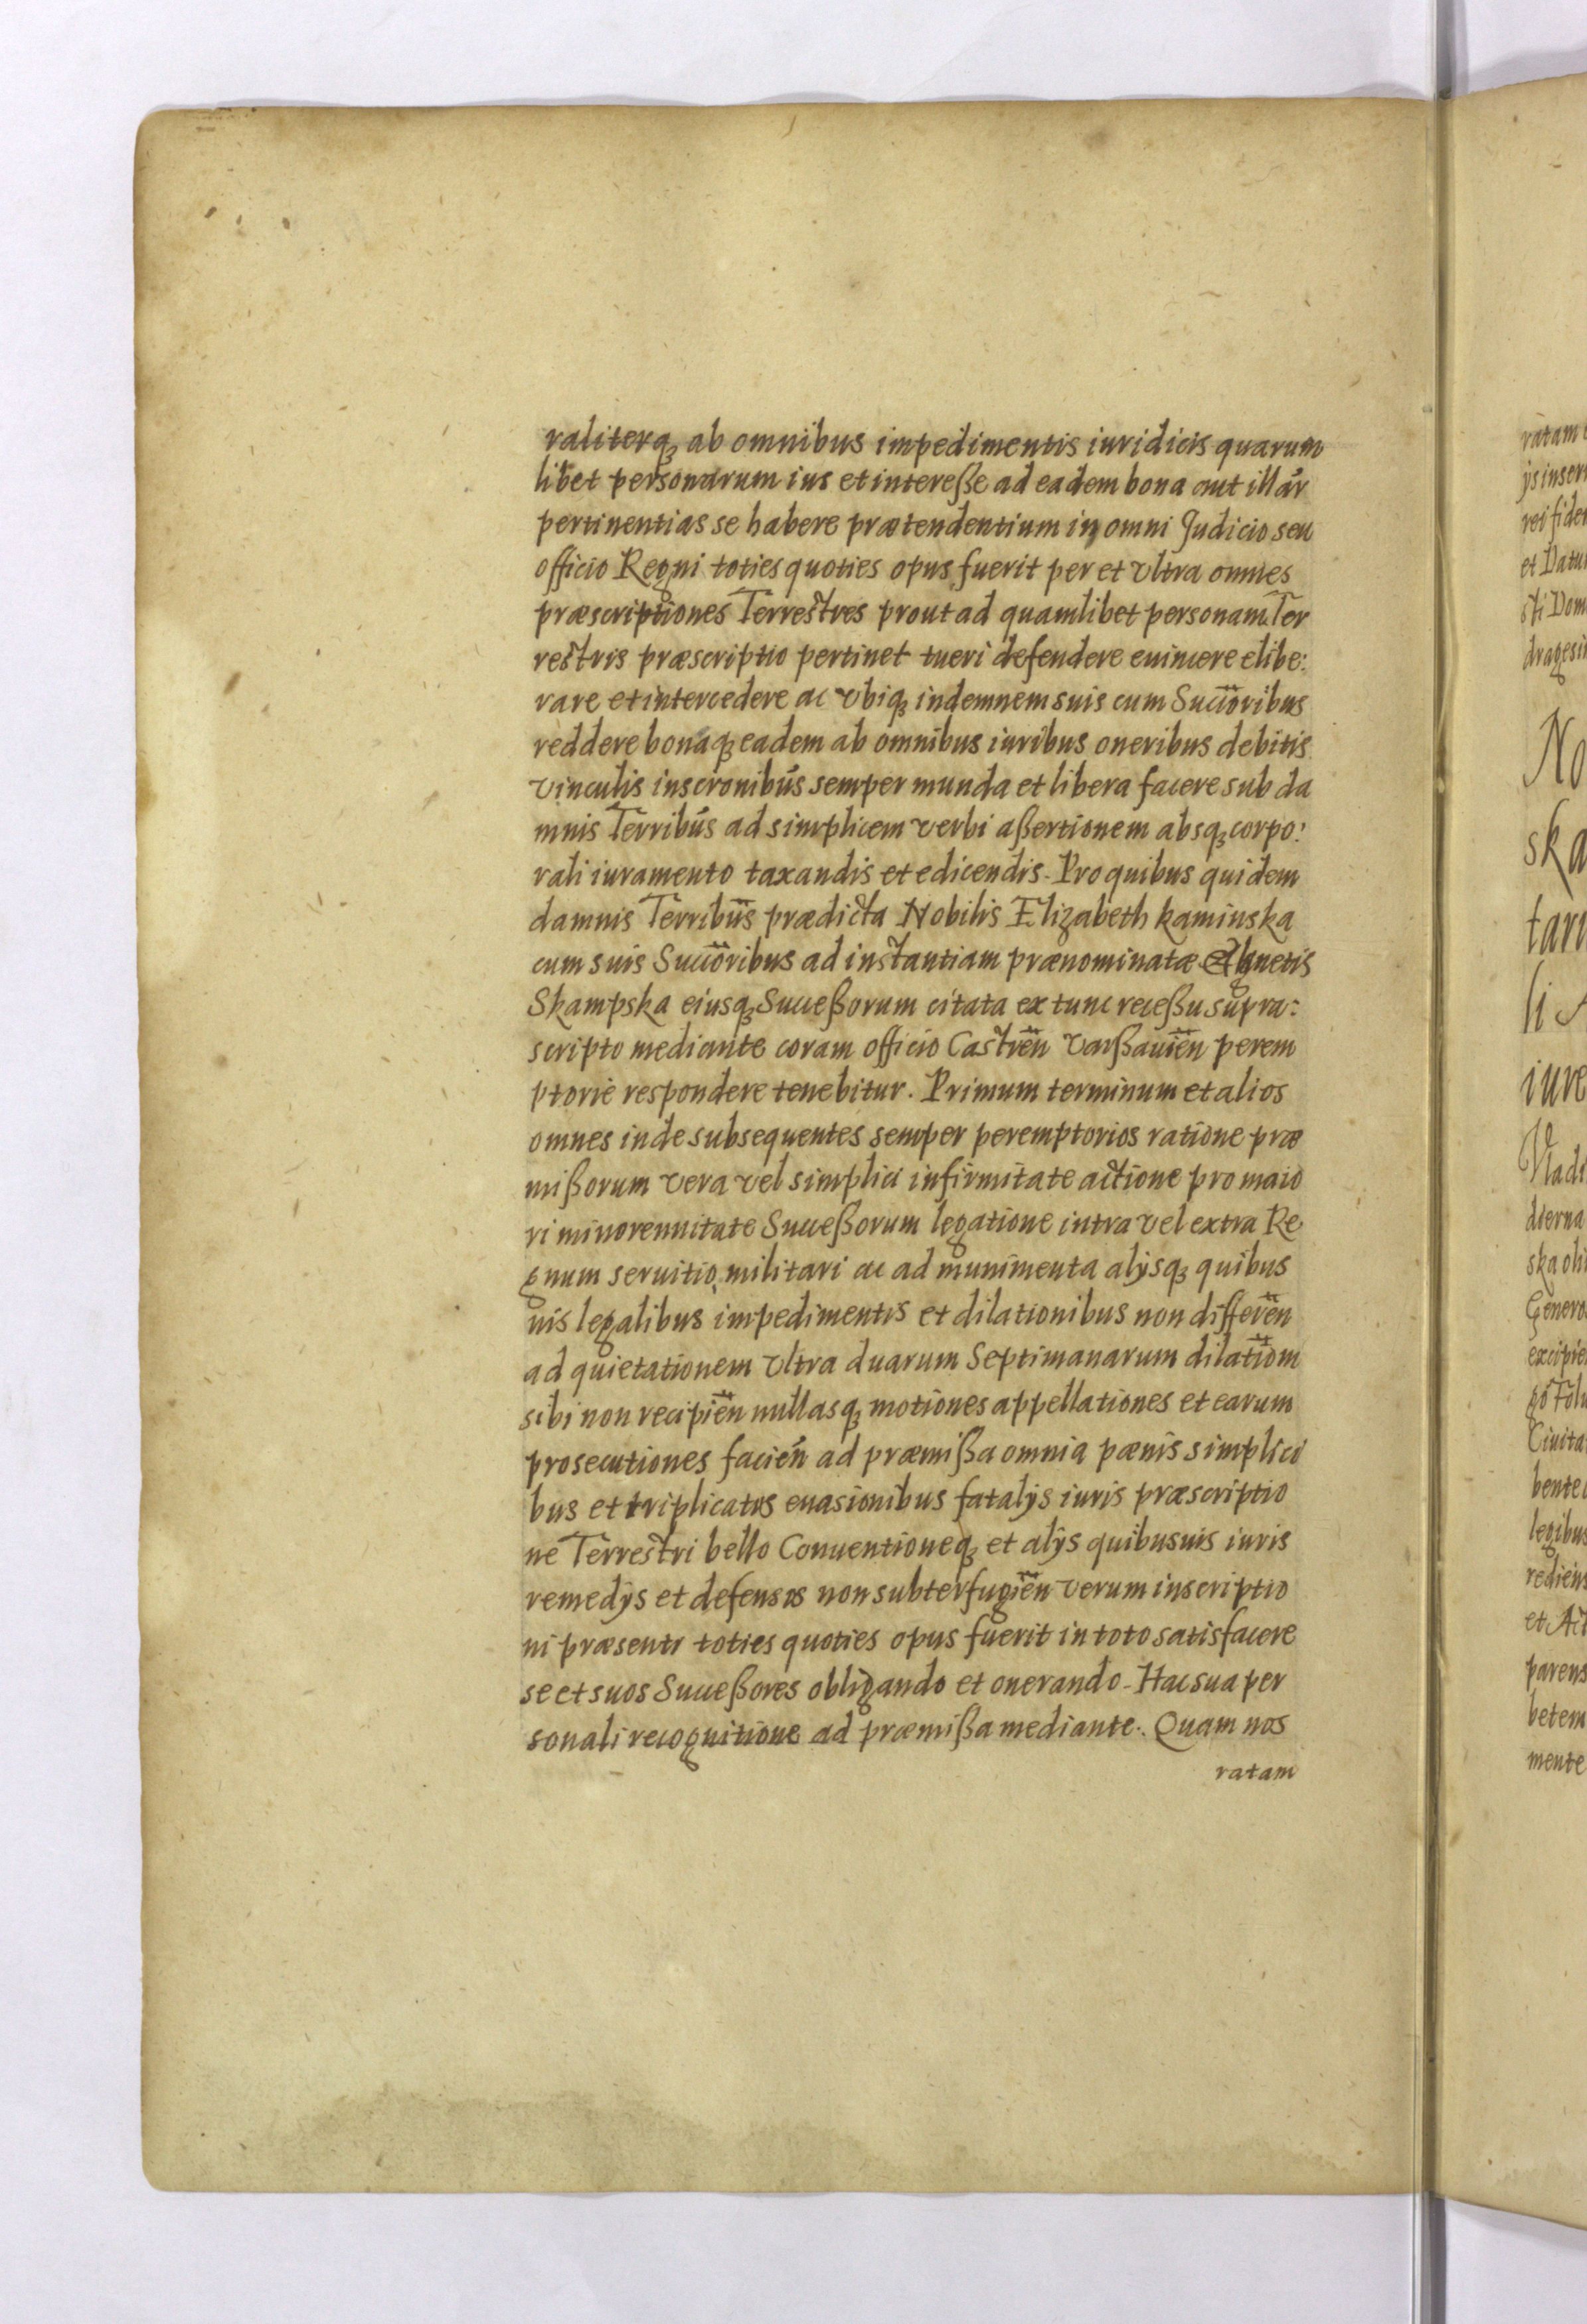 raliterq₃ ab omnibus impedimentis iuridicis quarum
libet personarum ius et interesse ad eadem bona aut illar̃
pertinentias se habere prætendentium in omni Judicio seu
officio Regni toties quoties opus fuerit per et vltra omnes
præscriptiones Terrestres prout ad quamlibet personam Ter
restris præscriptio pertinet tueri defendere euincere elibe:
rare et intercedere ac vbiq₃ indemnem suis cum Succ̃oribus
reddere bonaq₃ eadem ab omnibus iuribus oneribus debitis
vinculis inscr̃onibus semper munda et libera facere sub da
mnis Terribũs ad simplicem verbi aßertionem absq₃ corpo:
rali iuramento taxandis et edicendis. Pro quibus quidem
damnis Terribũs prædicta Nobilis Elizabeth kaminska
cum suis Succ̃oribus ad instantiam prænominatæ Agnetis
Skampska eiusq₃ Succeßorum citata ex tunc receßu supra:
scripto mediante coram officio Castreñ Varßauieñ perem
ptorie respondere tenebitur. Primum terminum et alios
omnes inde subsequentes semper peremptorios ratione præ
mißorum vera vel simplici infirmitate actione pro maio
ri minorennitate Succeßorum legatione intra vel extra Re
gnum seruitio militari ac ad munimenta alysq₃ quibus
uis legalibus impedimentis et dilationibus non differeñ
ad quietationem vltra duarum Septimanarum dilatiom̃
sibi non recipieñ nullasq₃ motiones appellationes et earum
prosecutiones facieñ ad præmißa omnia pænis simplici
bus et triplicatis euasionibus fatalÿs iuris præscriptio
ne Terrestri bello Conuentioneq₃ et alÿs quibusuis iuris
remedÿs et defensis non subterfugieñ verum inscriptio
ni præsenti toties quoties opus fuerit in toto satisfacere
se et suos Succeßores obligando et onerando. Hac sua per
sonali recognitione ad præmißa mediante. Quam nos
ratam